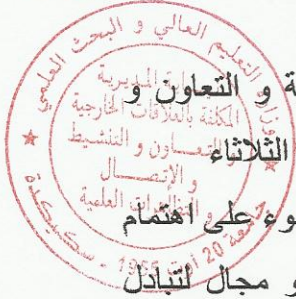 وزارة التعليم العالي و البحث العلمي
المديرية
المكلفة بالعلاقات الخارجية
و التعاون و التنشيط
و الإتصال
و التظاهرات العلمية
جامعة 20 أوت 1955 - سكيكدة
ة و التعاون و
الثلاثاء
وء على اهتمام
و مجال لتبادل